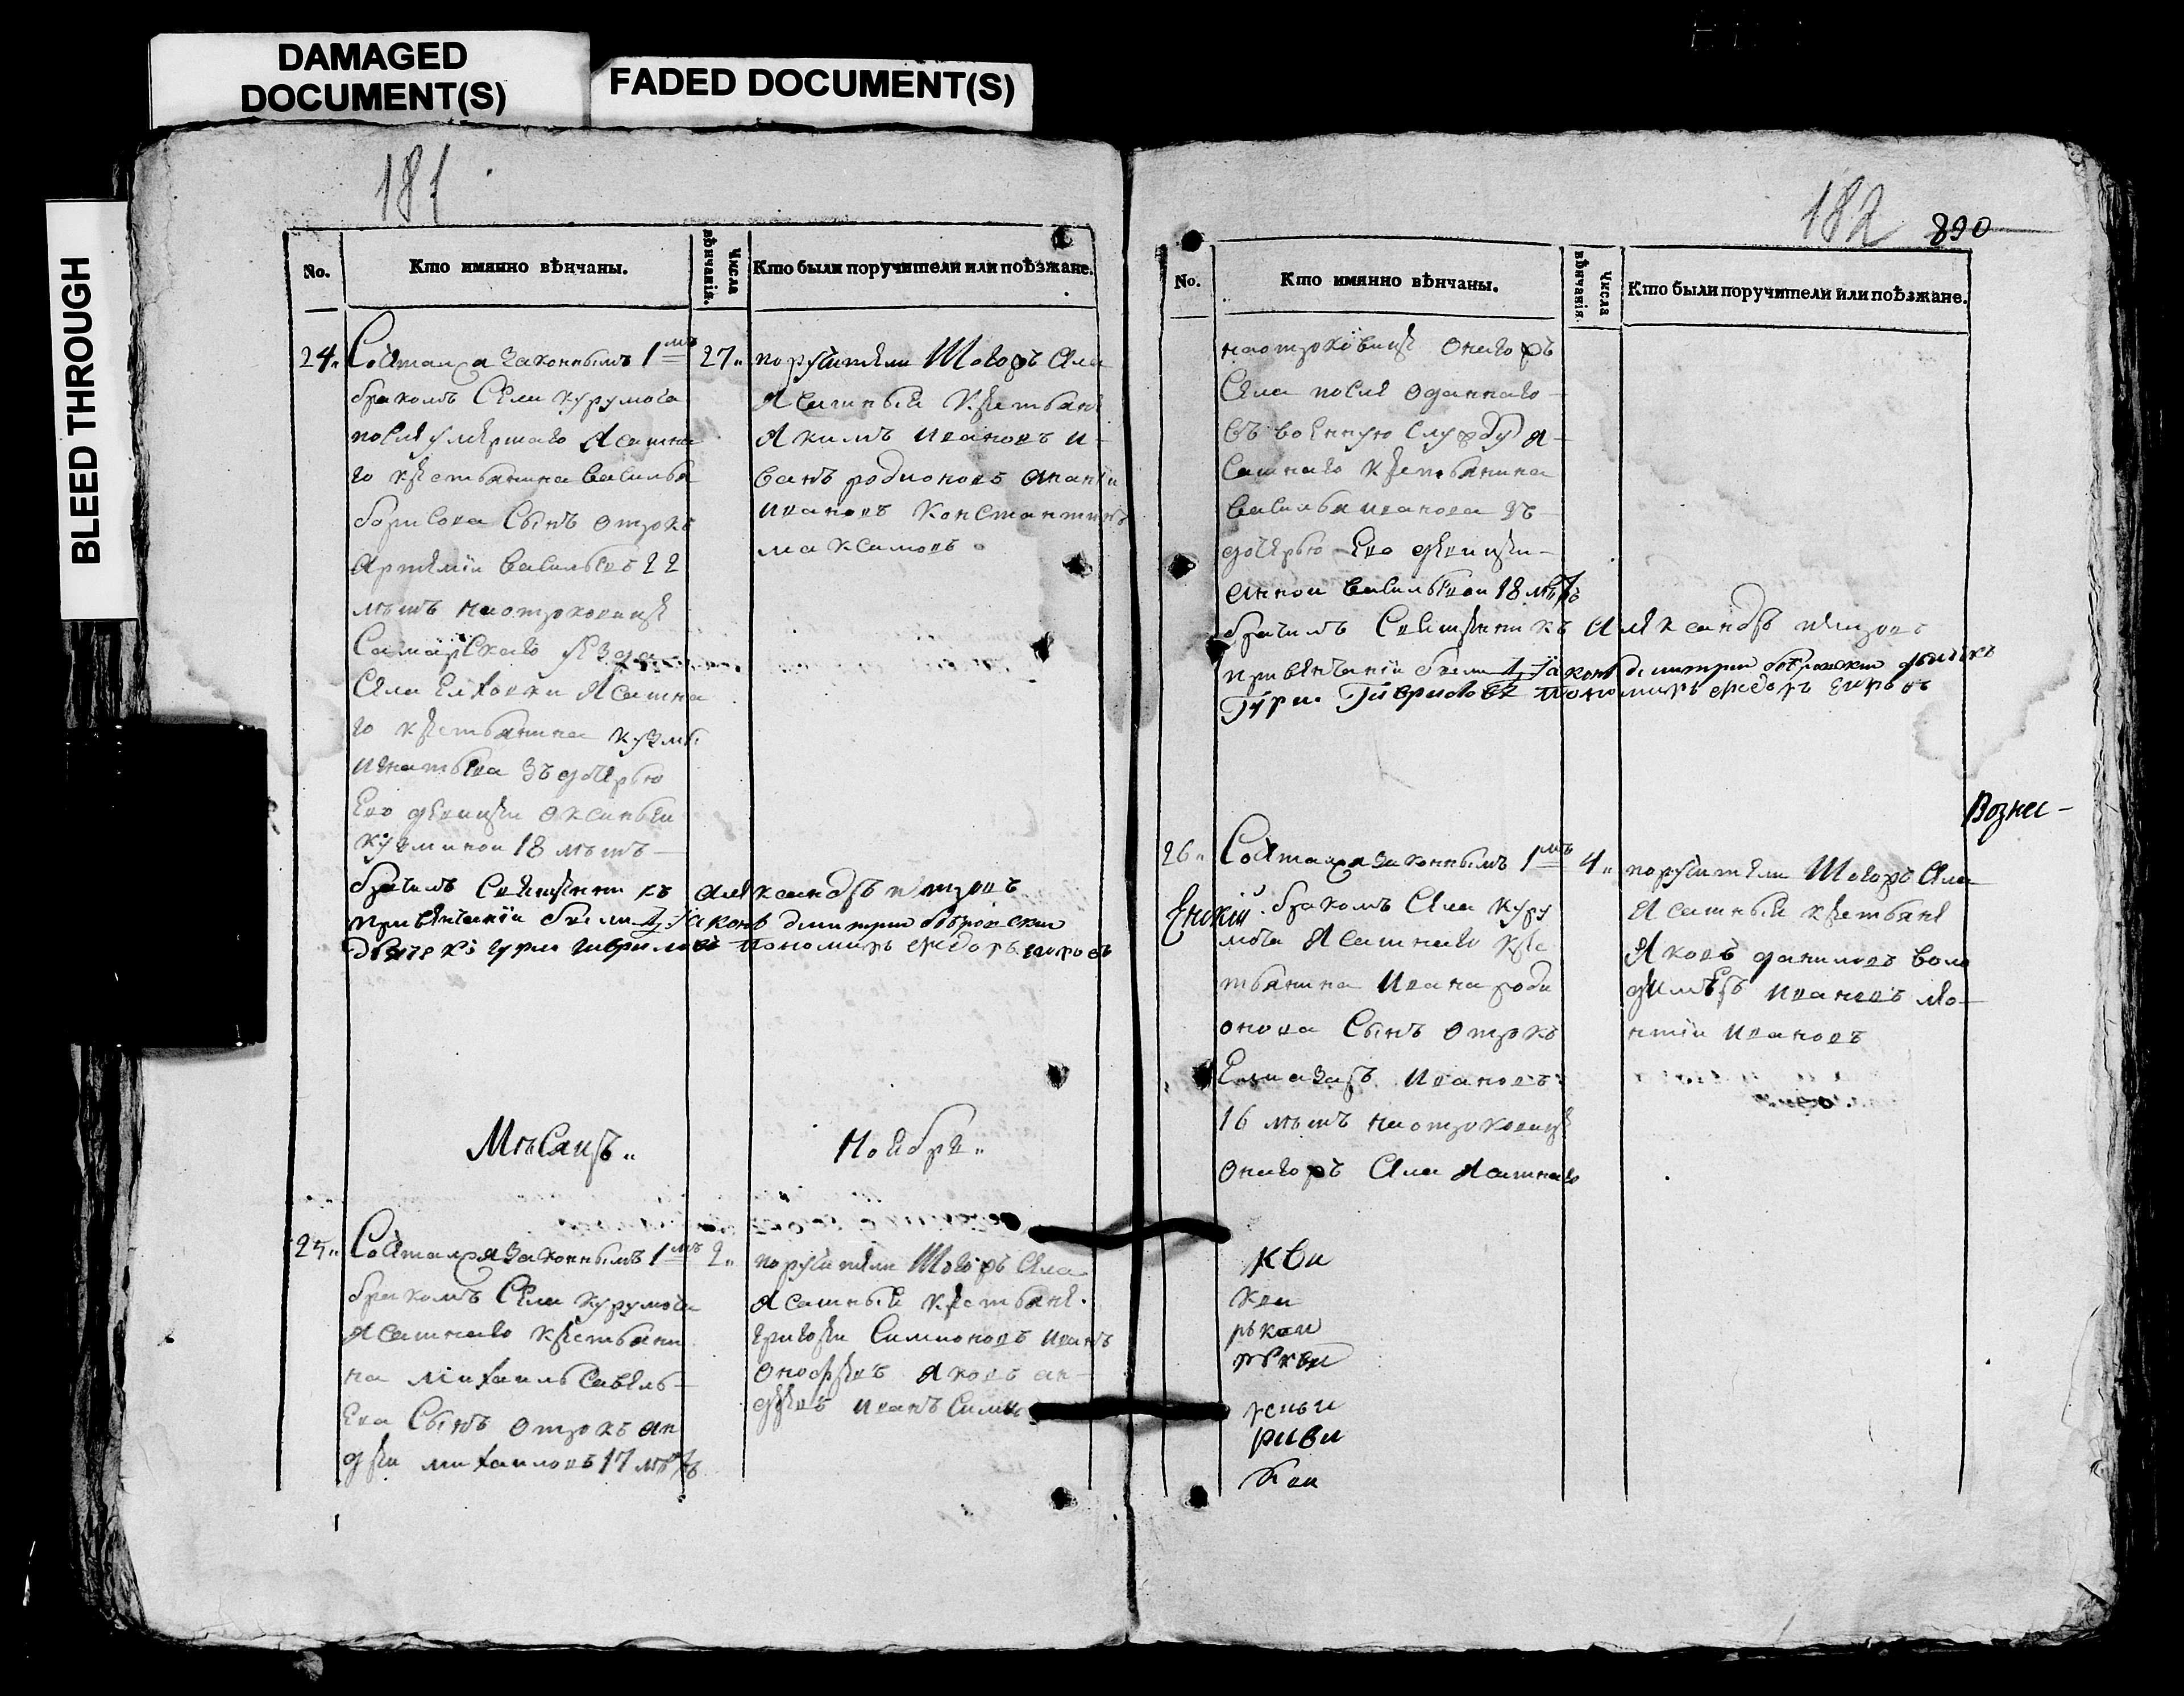 DAMAGED
DOCUMENT(S)
FADED DOCUMENT(S)
BLEED THROUGH
181
No.
Кто имянно вѣнчаны.
Числа вѣнчанія.
Кто были поручители или поѣзжане.
24.
Сочтался законнымъ 1мъ
бракомъ Села курумоча
после умершаго Ясашна
го крестьянина василья
борисова Сынъ отрокъ
Артемій васильевъ 22
лѣтъ на отроковице
Самарскаго уезда
Села Елховки Ясашна
го крестьянина кузмы
игнатьева зъ дочерью
Ево девицеи оксиньеи
кузминои 18 лѣтъ
27.
поручители Тогожъ Села
Ясашныи крестьяне
Якимъ ивановъ и
ванъ родионовъ ананіи
ивановъ константинъ
максимовъ
брачилъ Священникъ александръ петровъ
при венчаніи были Діяконъ димитрии бобровскии
дьячекъ гури гавриловъ пономарь федоръ егоровъ
Мѣсяцъ
ноября
25.
Сочтался законнымъ 1мъ
бракомъ Села курумоча
Ясашнаго крестьяни
на михаилы Савель
ева Сынъ отрокъ ан
дреи михаиловъ 17 лѣтъ
2.
поручители Тогожъ Села
Ясашныи крестьяне
григореи Симионовъ иванъ
онофреевъ Яковъ ан
дреевъ иванъ
182
890
No.
Кто имянно вѣнчаны.
Числа вѣнчанія.
Кто были поручители или поѣзжане.
на отроковице онагожъ
Села после отданнаго
въ военную службу Я
сашнаго крестьянина
василья иванова зъ
дочерью Ево девицеи
анной васильевои 18 лѣтъ
брачилъ Священникъ александръ петровъ
при венчаніи были Діяконъ димитрии бобровскии дьячекъ
Гури Гавриловъ пономарь федоръ Егоровъ
Вознес-
26.
Сочтался законнымъ 1мъ
бракомъ Села куру
моча Ясашнаго кре
стьянина ивана роди
онова Сынъ отрокъ
Елиазаръ ивановъ
16 лѣтъ на отроковице
онагожъ Села Ясашнаго
4.
поручители Тогожъ Села
Ясашныи крестьяне
Яковъ даниловъ воло
димеръ ивановъ ле
онтіи ивановъ